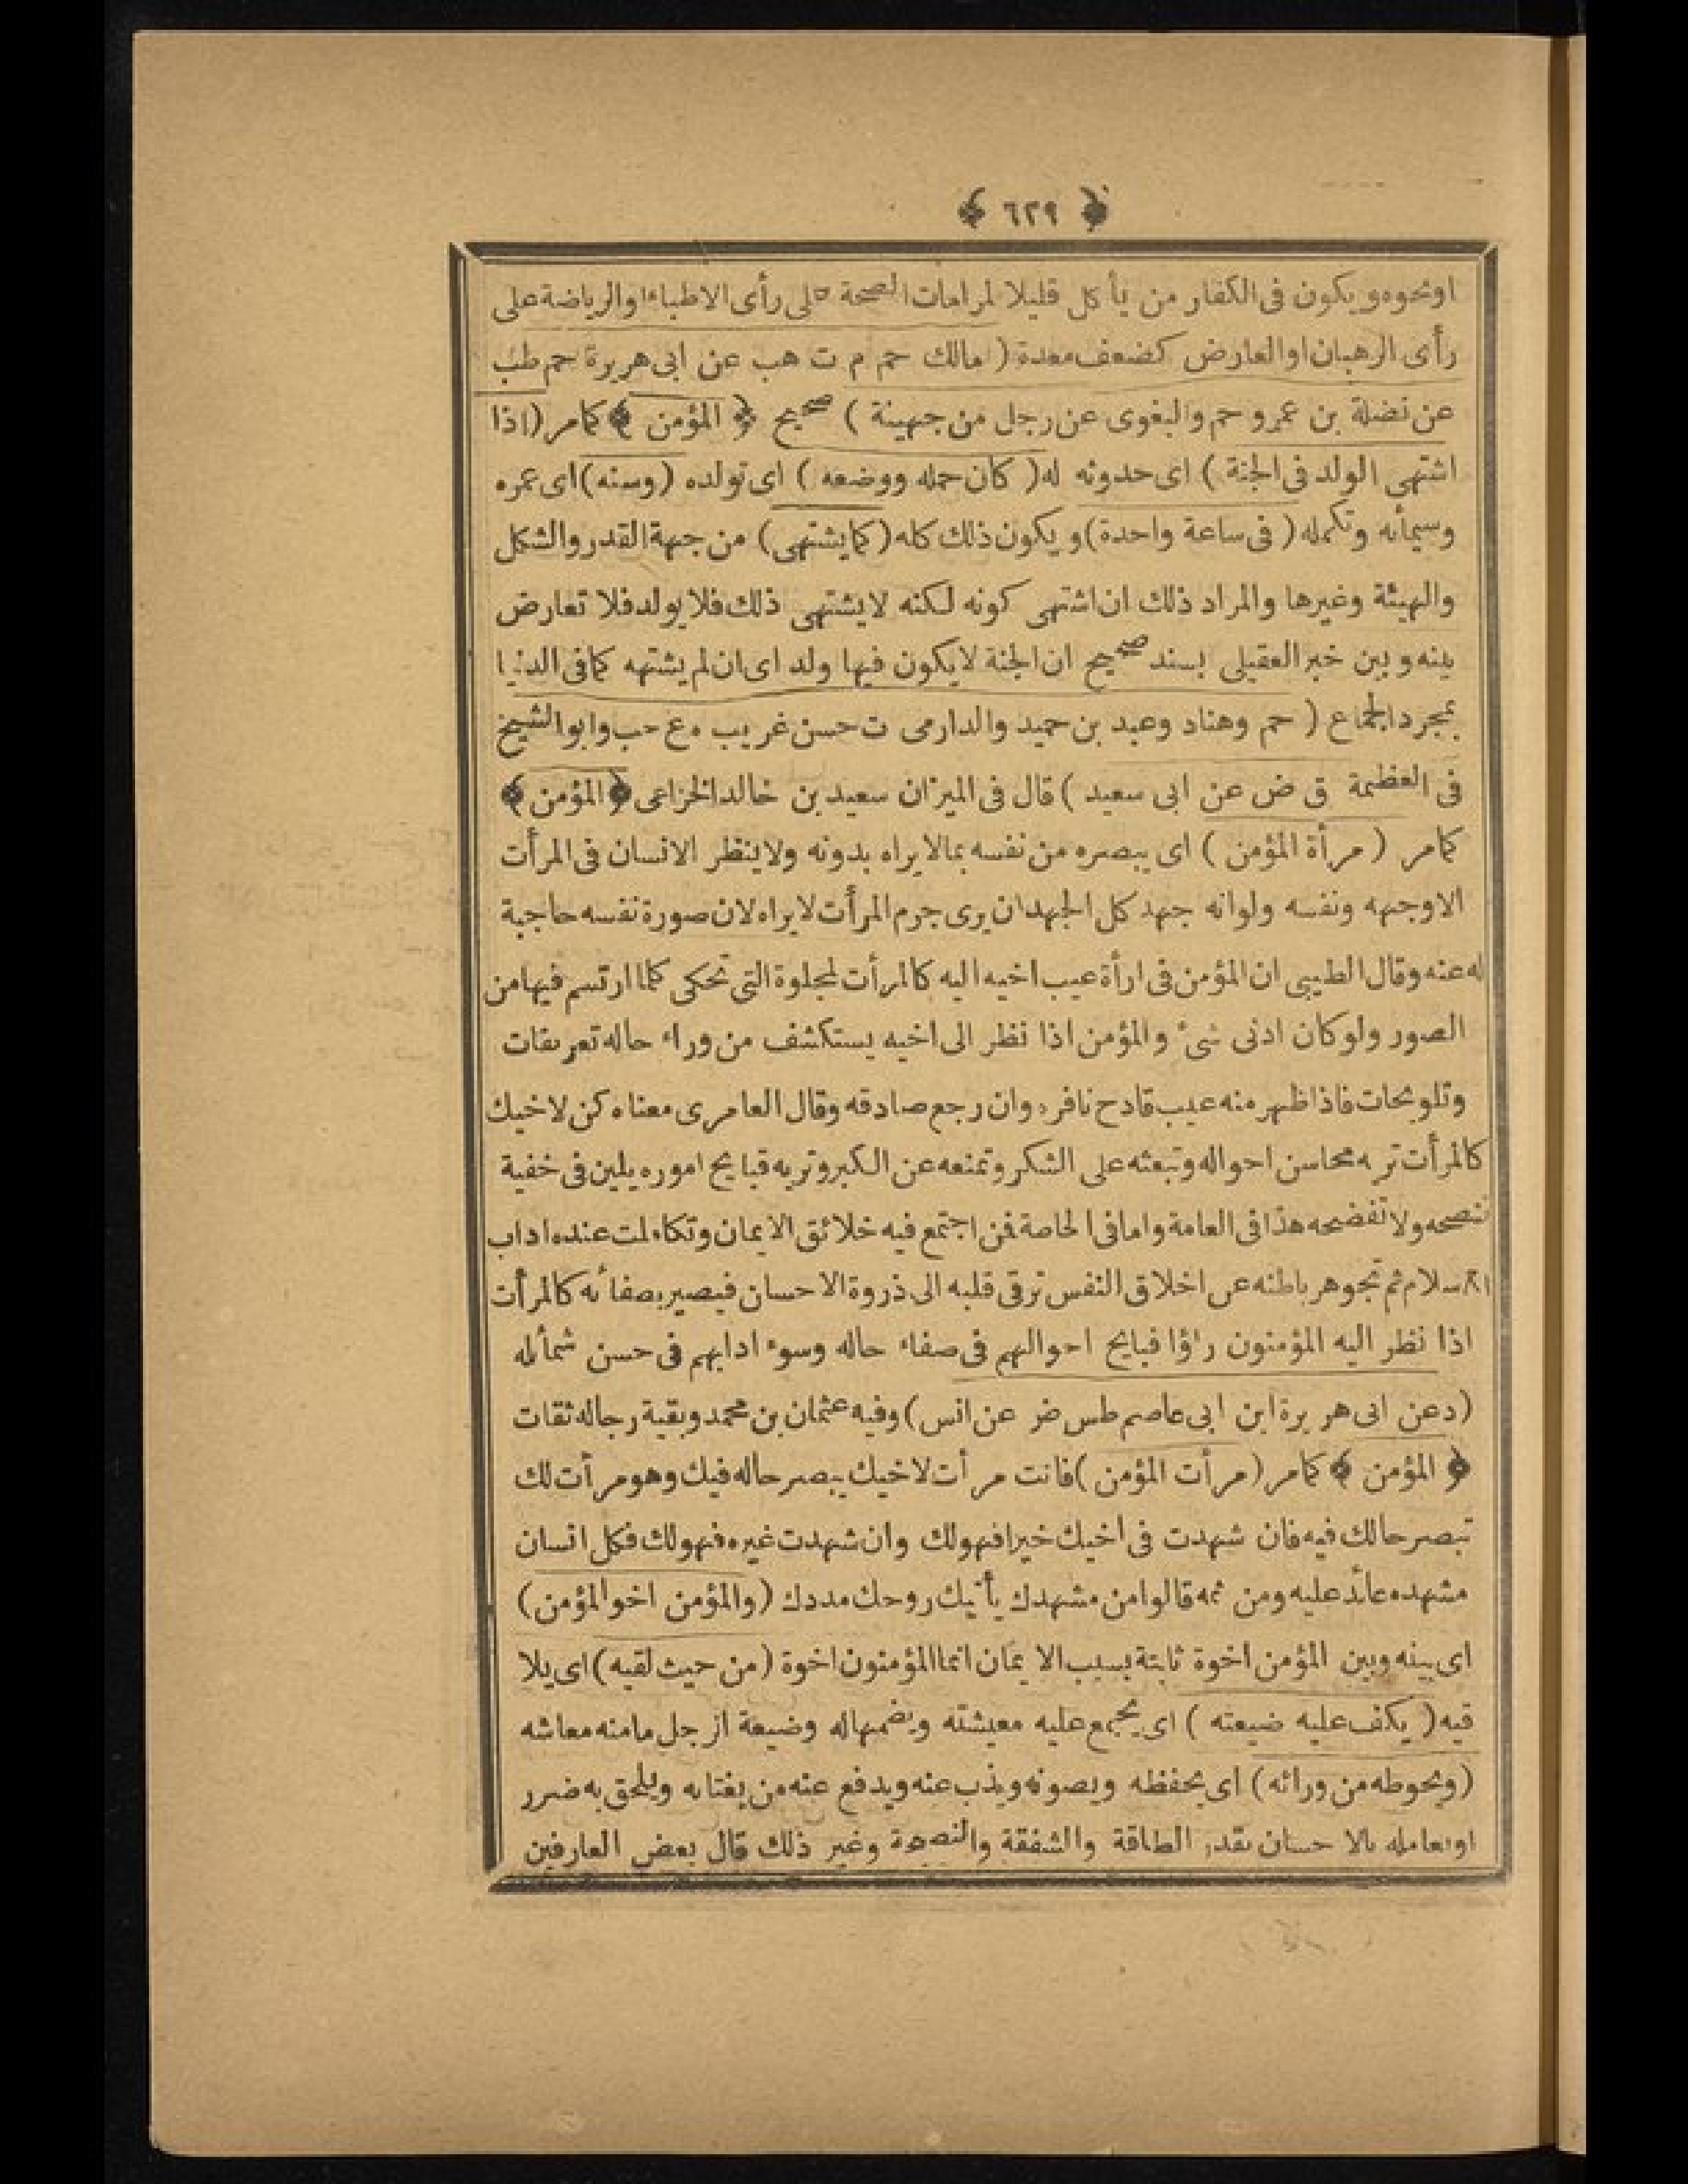 ﴿ ٦٢٩ ﴾
اونحوه ويكون فى الكفار من يأكل قليلا لمراعات الصحة على رأى الاطباء اوالرياضة على
رأى الرهبان اوالعارض كضعف معدة ( مالك حم م ت هب عن ابى هريرة حم طب
عن نضلة بن عمرو حم والبغوى عن رجل من جهينة ) صحيح ﴿ المؤمن ﴾ كمامر (اذا
اشتهى الولد فى الجنة ) اى حدوثه له ( كان حمله ووضعه ) اى تولده (وسنه) اى عمره
وسيمأته وتكمله ( فى ساعة واحدة) و يكون ذلك كله (كمايشتهى) من جهة القدر والشكل
والهيئة وغيرها والمراد ذلك ان اشتهى كونه لكنه لايشتهى ذلك فلا يولد فلا تعارض
بينه و بين خبر العقيلى بسند صحيح ان الجنة لايكون فيها ولد اى ان لم يشتهه كمافى الدنيا
بمجرد الجماع ( حم وهناد وعبد بن حميد والدارمى ت حسن غريب ه ع حب وابوالشيخ
فى العظيمة ق ض عن ابى سعيد ) قال فى الميزان سعيد بن خالد الخزاعى ﴿ المؤمن ﴾
كمامر ( مرأة المؤمن ) اى يبصره من نفسه بمالا يراه بدونه ولا ينظر الانسان فى المرأت
الاوجهه ونفسه ولوانه جهد كل الجهد ان يرى جرم المرأت لايراه لان صورة نفسه حاجبة
له عنه وقال الطيبى ان المؤمن فى ارأة عيب اخيه اليه كالمرأت لمجلوة التى تحكى كلما ارتسم فيها من
الصور ولوكان ادنى شئ والمؤمن اذا نظر الى اخيه يستكشف من وراء حاله تعريفات
وتلويحات فاذا ظهر منه عيب قادح نافره وان رجع صادقه وقال العامرى معناه كن لاخيك
كالمرأت تريه محاسن احواله وتبعثه على الشكر وتمنعه عن الكبر وتريه قبايح اموره بلين فى خفية
تنصحه ولا تفضحه هذا فى العامة واما فى الخاصة فمن اجتمع فيه خلائق الايمان وتكاملت عنده اداب
الاسلام ثم تجوهر باطنه عن اخلاق النفس ترقى قلبه الى ذروة الاحسان فيصير بصفائه كالمرأت
اذا نظر اليه المؤمنون راؤا قبايح احوالهم فى صفاء حاله وسوء ادابهم فى حسن شمأله
(د عن ابى هريرة ابن ابى عاصم طس ضر عن انس) وفيه عثمان بن محمد وبقية رجاله ثقات
﴿ المؤمن ﴾ كمامر (مرأت المؤمن) فانت مرأت لاخيك يبصر حاله فيك وهو مرأت لك
تبصر حالك فيه فان شهدت فى اخيك خيرا فهولك وان شهدت غيره فهولك فكل انسان
مشهده عائد عليه ومن ثمه قالوا من مشهدك يأتيك روحك مددك (والمؤمن اخو المؤمن)
اى بينه وبين المؤمن اخوة ثابتة بسبب الايمان انما المؤمنون اخوة (من حيث لقيه) اى يلا
قيه ( يكف عليه ضيعته ) اى يجمع عليه معيشته ويضمها له وضيعة الرجل مامنه معاشه
(ويحوطه من ورائه) اى يحفظه ويصونه ويذب عنه ويدفع عنه من يغتابه ويلحق به ضرر
او يعامله بالاحسان بقدر الطاقة والشفقة والنصيحة وغير ذلك قال بعض العارفين